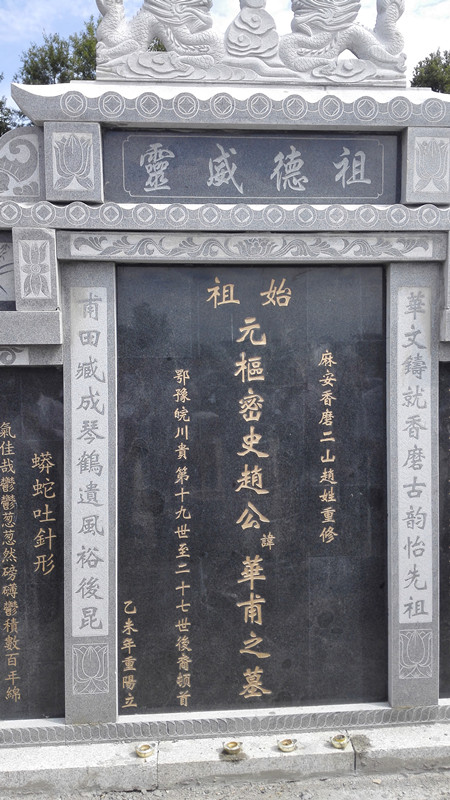 祖德威靈
始祖
華文鑄就香磨古韵怡先祖
麻安香磨二山趙姓重修
元樞密史趙公諱華甫之墓
鄂豫皖川貴第十九世至二十七世後裔頓首
乙未年重陽立
甫田臧成琴鶴遺風裕後昆
蟒蛇吐針形
氣佳哉鬱鬱葱葱然磅礴鬱積數百年綿